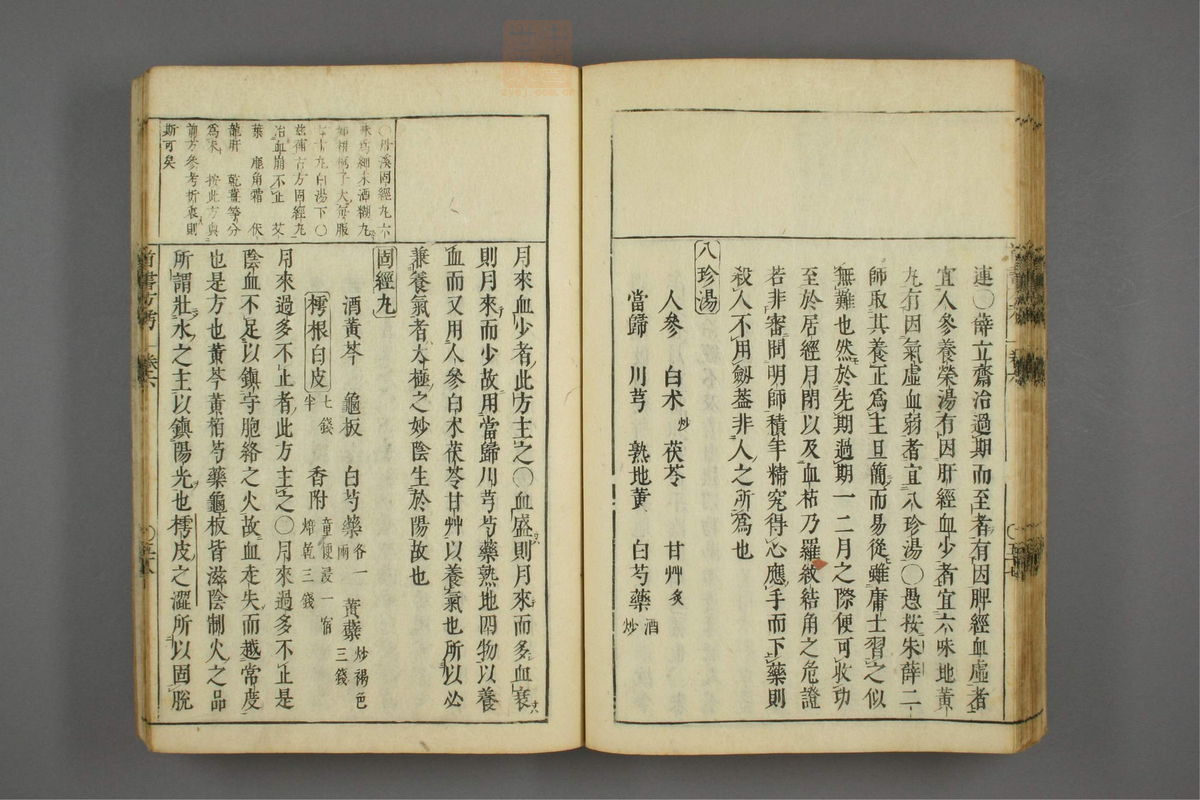 連〇薛立齋治過期而至者有因脾經血虛者
宜人參養榮湯有因肝經血少者宜六味地黃
丸有因氣虛血弱者宜八珍湯〇愚按朱薛二
師取其養正爲主且簡而易從雖庸士習之似
無難也然於先期過期一二月之際便可收功
至於居經月閉以及血枯乃羅紋結角之危證
若非審問明師積年精究得心應手而下藥則
殺人不用劔葢非人之所爲也
八珍湯
人參 白朮炒 茯苓 甘艸炙
當歸 川芎 熟地黃 白芍藥酒炒
〇丹溪固經丸六
味爲細末酒糊丸
如梧桐子大每服
七十丸白湯下〇
玆補古方固經丸
治血崩不止 艾
葉 鹿角霜 伏
龍肝 乾薑等分
爲末 按此方與
前方參考折衷則
斯可矣
月來血少者此方主之〇血盛則月來而多血衰
則月來而少故用當歸川芎芍藥熟地四物以養
血而又用人參白朮茯苓甘艸以養氣也所以必
兼養氣者太極之妙陰生於陽故也
固經丸
酒黃芩 龜板 白芍藥各一兩 黃蘗炒褐色三錢
樗根白皮七錢半 香附童便浸一宿焙乾三錢
月來過多不止者此方主之〇月來過多不止是
陰血不足以鎮守胞絡之火故血走失而越常度
也是方也黃芩黃栢芍藥龜板皆滋陰制火之品
所謂壯水之主以鎮陽光也樗皮之澀所以固脫
方考
卷六